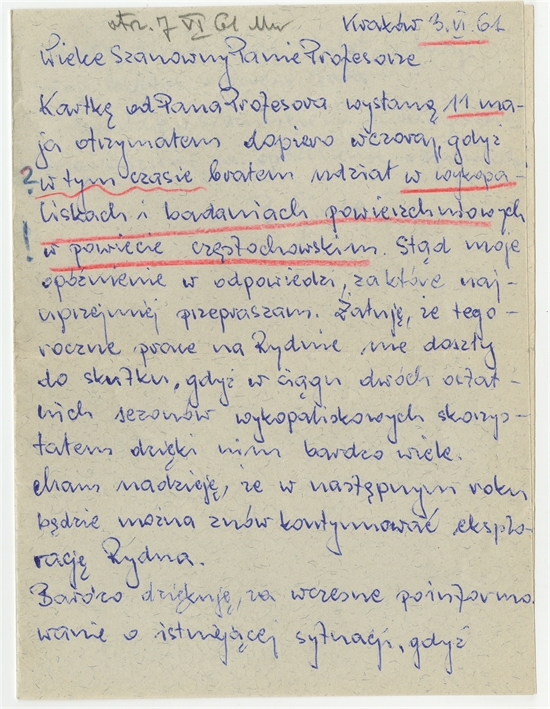 otr. 7 VI 61
Kraków 3.VI.61
Wielce Szanowny Panie Profesorze
Kartkę od Pana Profesora wysłaną 11 ma-
ja otrzymałem dopiero wczoraj, gdyż
? w tym czasie brałem udział w wykopa-
liskach i badaniach powierzchniowych
! w powiecie częstochowskim. Stąd moje
opóźnienie w odpowiedzi, za które naj-
uprzejmiej przepraszam. Żałuję, że tego-
roczne prace na Rydnie nie doszły
do skutku, gdyż w ciągu dwóch ostat-
nich sezonów wykopaliskowych skorzys-
tałem dzięki nim bardzo wiele.
Mam nadzieję, że w następnym roku
będzie można znów kontynuować eksplo-
rację Rydna.
Bardzo dziękuję, za wczesne poinformo
wanie o istniejącej sytuacji, gdyż